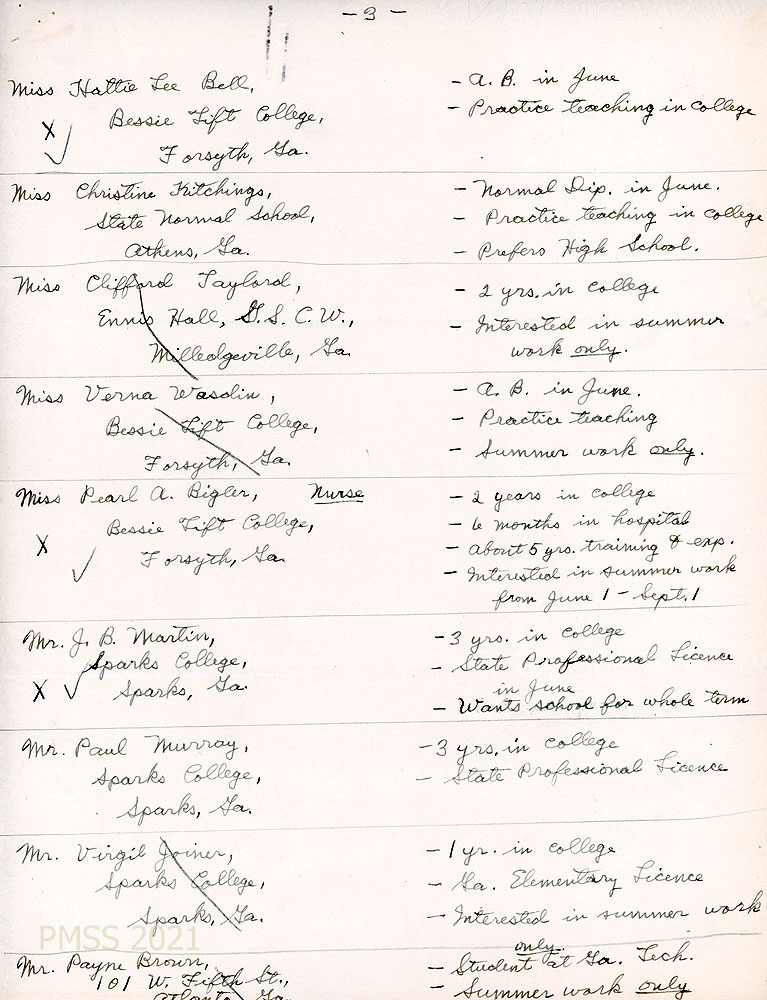 - 3 -
Miss Hattie Lee Bell,
Bessie Tift College,
Forsyth, Ga.
- A. B. in June
- Practice teaching in college
X ✓
Miss Christine Kitchings,
State Normal School,
Athens, Ga.
- Normal Dip. in June.
- Practice teaching in college
- Prefers High School.
Miss Clifford Taylord,
Ennis Hall, G. S. C. W.,
Milledgeville, Ga
- 2 yrs. in college
- Interested in summer
work only.
Miss Verna Wasdin,
Bessie Tift College,
Forsyth, Ga.
- A. B. in June.
- Practice teaching
- Summer work only.
Miss Pearl A. Bigler, Nurse
Bessie Tift College,
Forsyth, Ga.
X ✓
- 2 years in college
- 6 months in hospital
- About 5 yrs. training & exp.
- Interested in summer work
from June 1 - Sept. 1
Mr. J. B. Martin,
Sparks College,
Sparks, Ga.
X ✓
- 3 yrs. in college
- State Professional Licence
in June
- Wants school for whole term
Mr. Paul Murray,
Sparks College,
Sparks, Ga.
- 3 yrs. in college
- State Professional Licence
Mr. Virgil Joiner,
Sparks College,
Sparks, Ga.
- 1 yr. in college
- Ga. Elementary Licence
- Interested in summer work
only.
Mr. Payne Brown,
101 W. Fifth St.,
Atlanta, Ga.
- Student at Ga. Tech.
- Summer work only
PMSS 2021